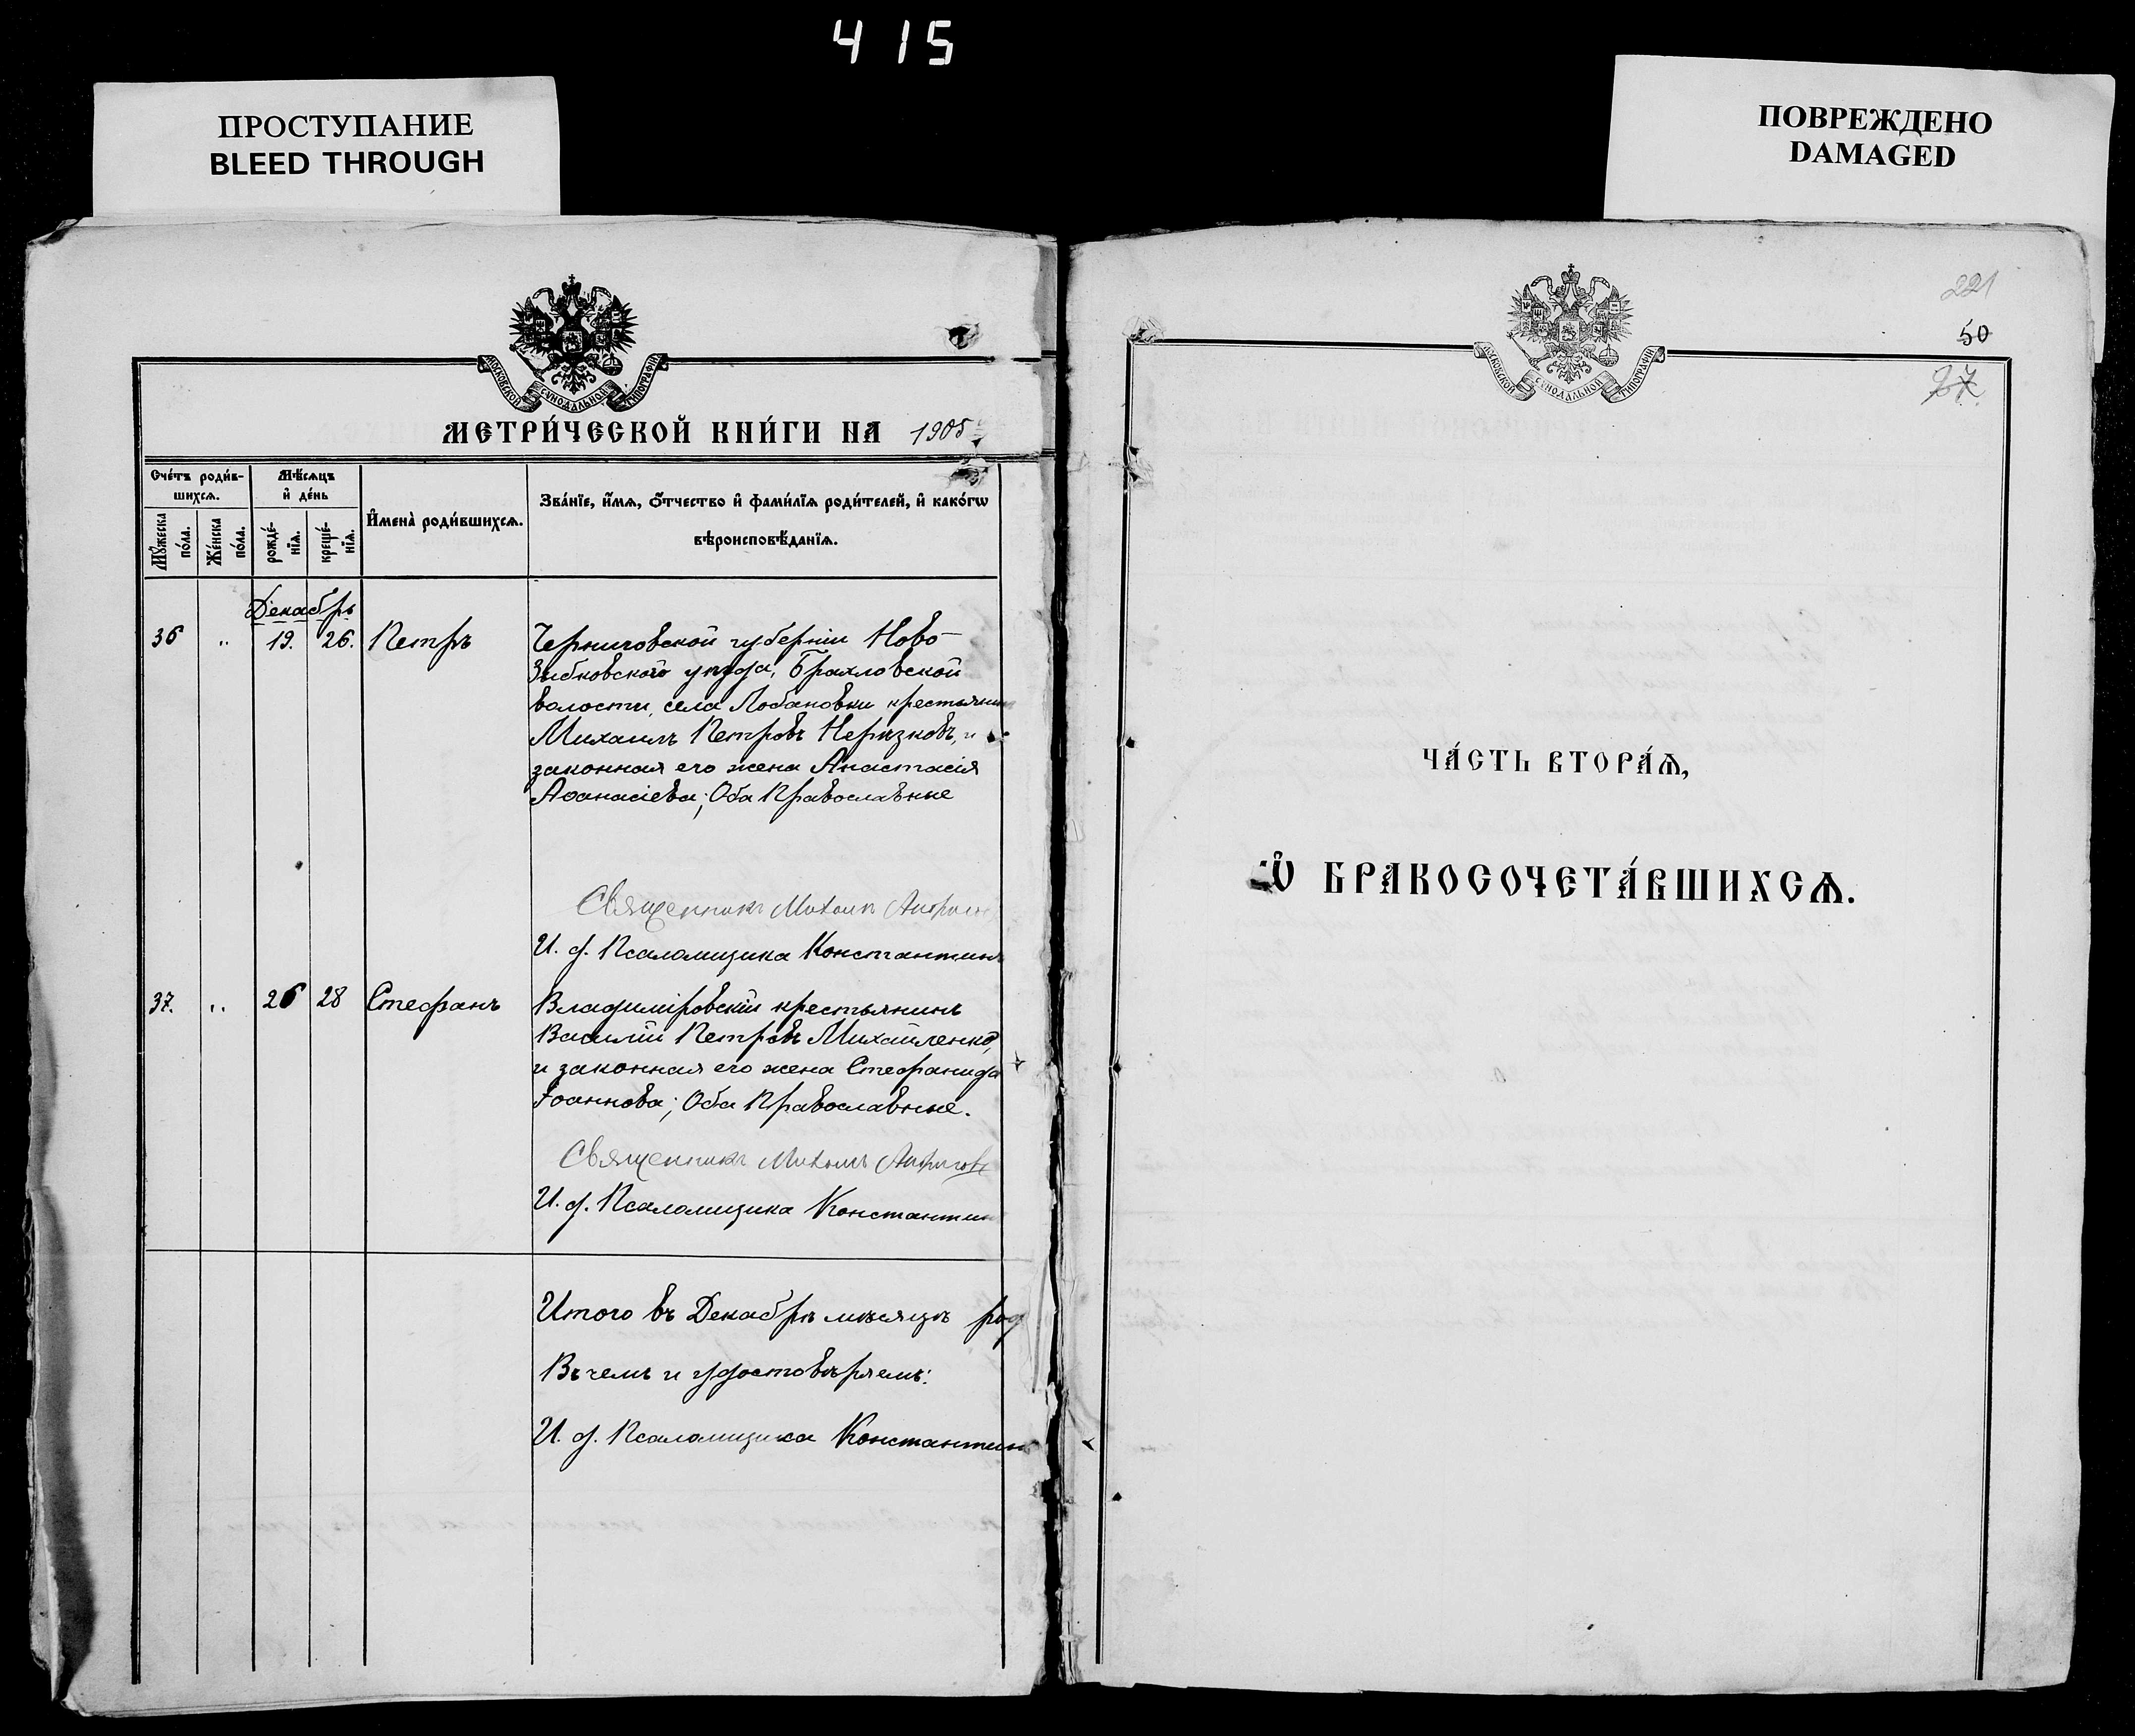 4 1 5
ПРОСТУПАНИЕ
BLEED THROUGH
ПОВРЕЖДЕНО
DAMAGED
МОСКОВСКОЙ СѴНОДАЛЬНОЙ ТИПОГРАФІИ
МЕТРИ́ЧЕСКОЙ КНИ́ГИ НА 1905
Сче́тъ роди́в-
шихсѧ.
Мѣ́сѧцъ
и҆ де́нь
Мꙋ́жеска
по́ла.
Же́нска
по́ла.
рожде́-
нїѧ.
креще́-
нїѧ.
И҆мена̀ роди́вшихсѧ.
Зва́нїе, и҆́мѧ, ѻ҆́тчество и҆ фами́лїѧ роди́телей, и҆ како́гѡ
вѣроисповѣ́данїѧ.
Декабрь
36 " 19. 26. Петръ Черниговской губерніи Ново-
Зыбковскаго уѣзда, Брахловской
волости, села Лобановки крестьянин
Михаилъ Петровъ Нерѣзковъ, и
законная его жена Анастасія
Аѳанасіева; Оба Православные
Священникъ Михаилъ
И. д. Псаломщика Константинъ
37. " 26 28 Стефанъ Владиміровскій крестьянинъ
Василій Петровъ Михайленко,
и законная его жена Стефанида
Іоаннова; Оба Православные.
Священникъ Михаилъ
И. д. Псаломщика Константин
Итого въ Декабрѣ мѣсяцѣ род
Въ чемъ и удостовѣряемъ:
И. д. Псаломщика Константинъ
221
50
27
МОСКОВСКОЙ СѴНОДАЛЬНОЙ ТИПОГРАФІИ
ЧА́СТЬ ВТОРА́Ѧ,
Ѡ҆ БРАКОСОЧЕТА́ВШИХСѦ.